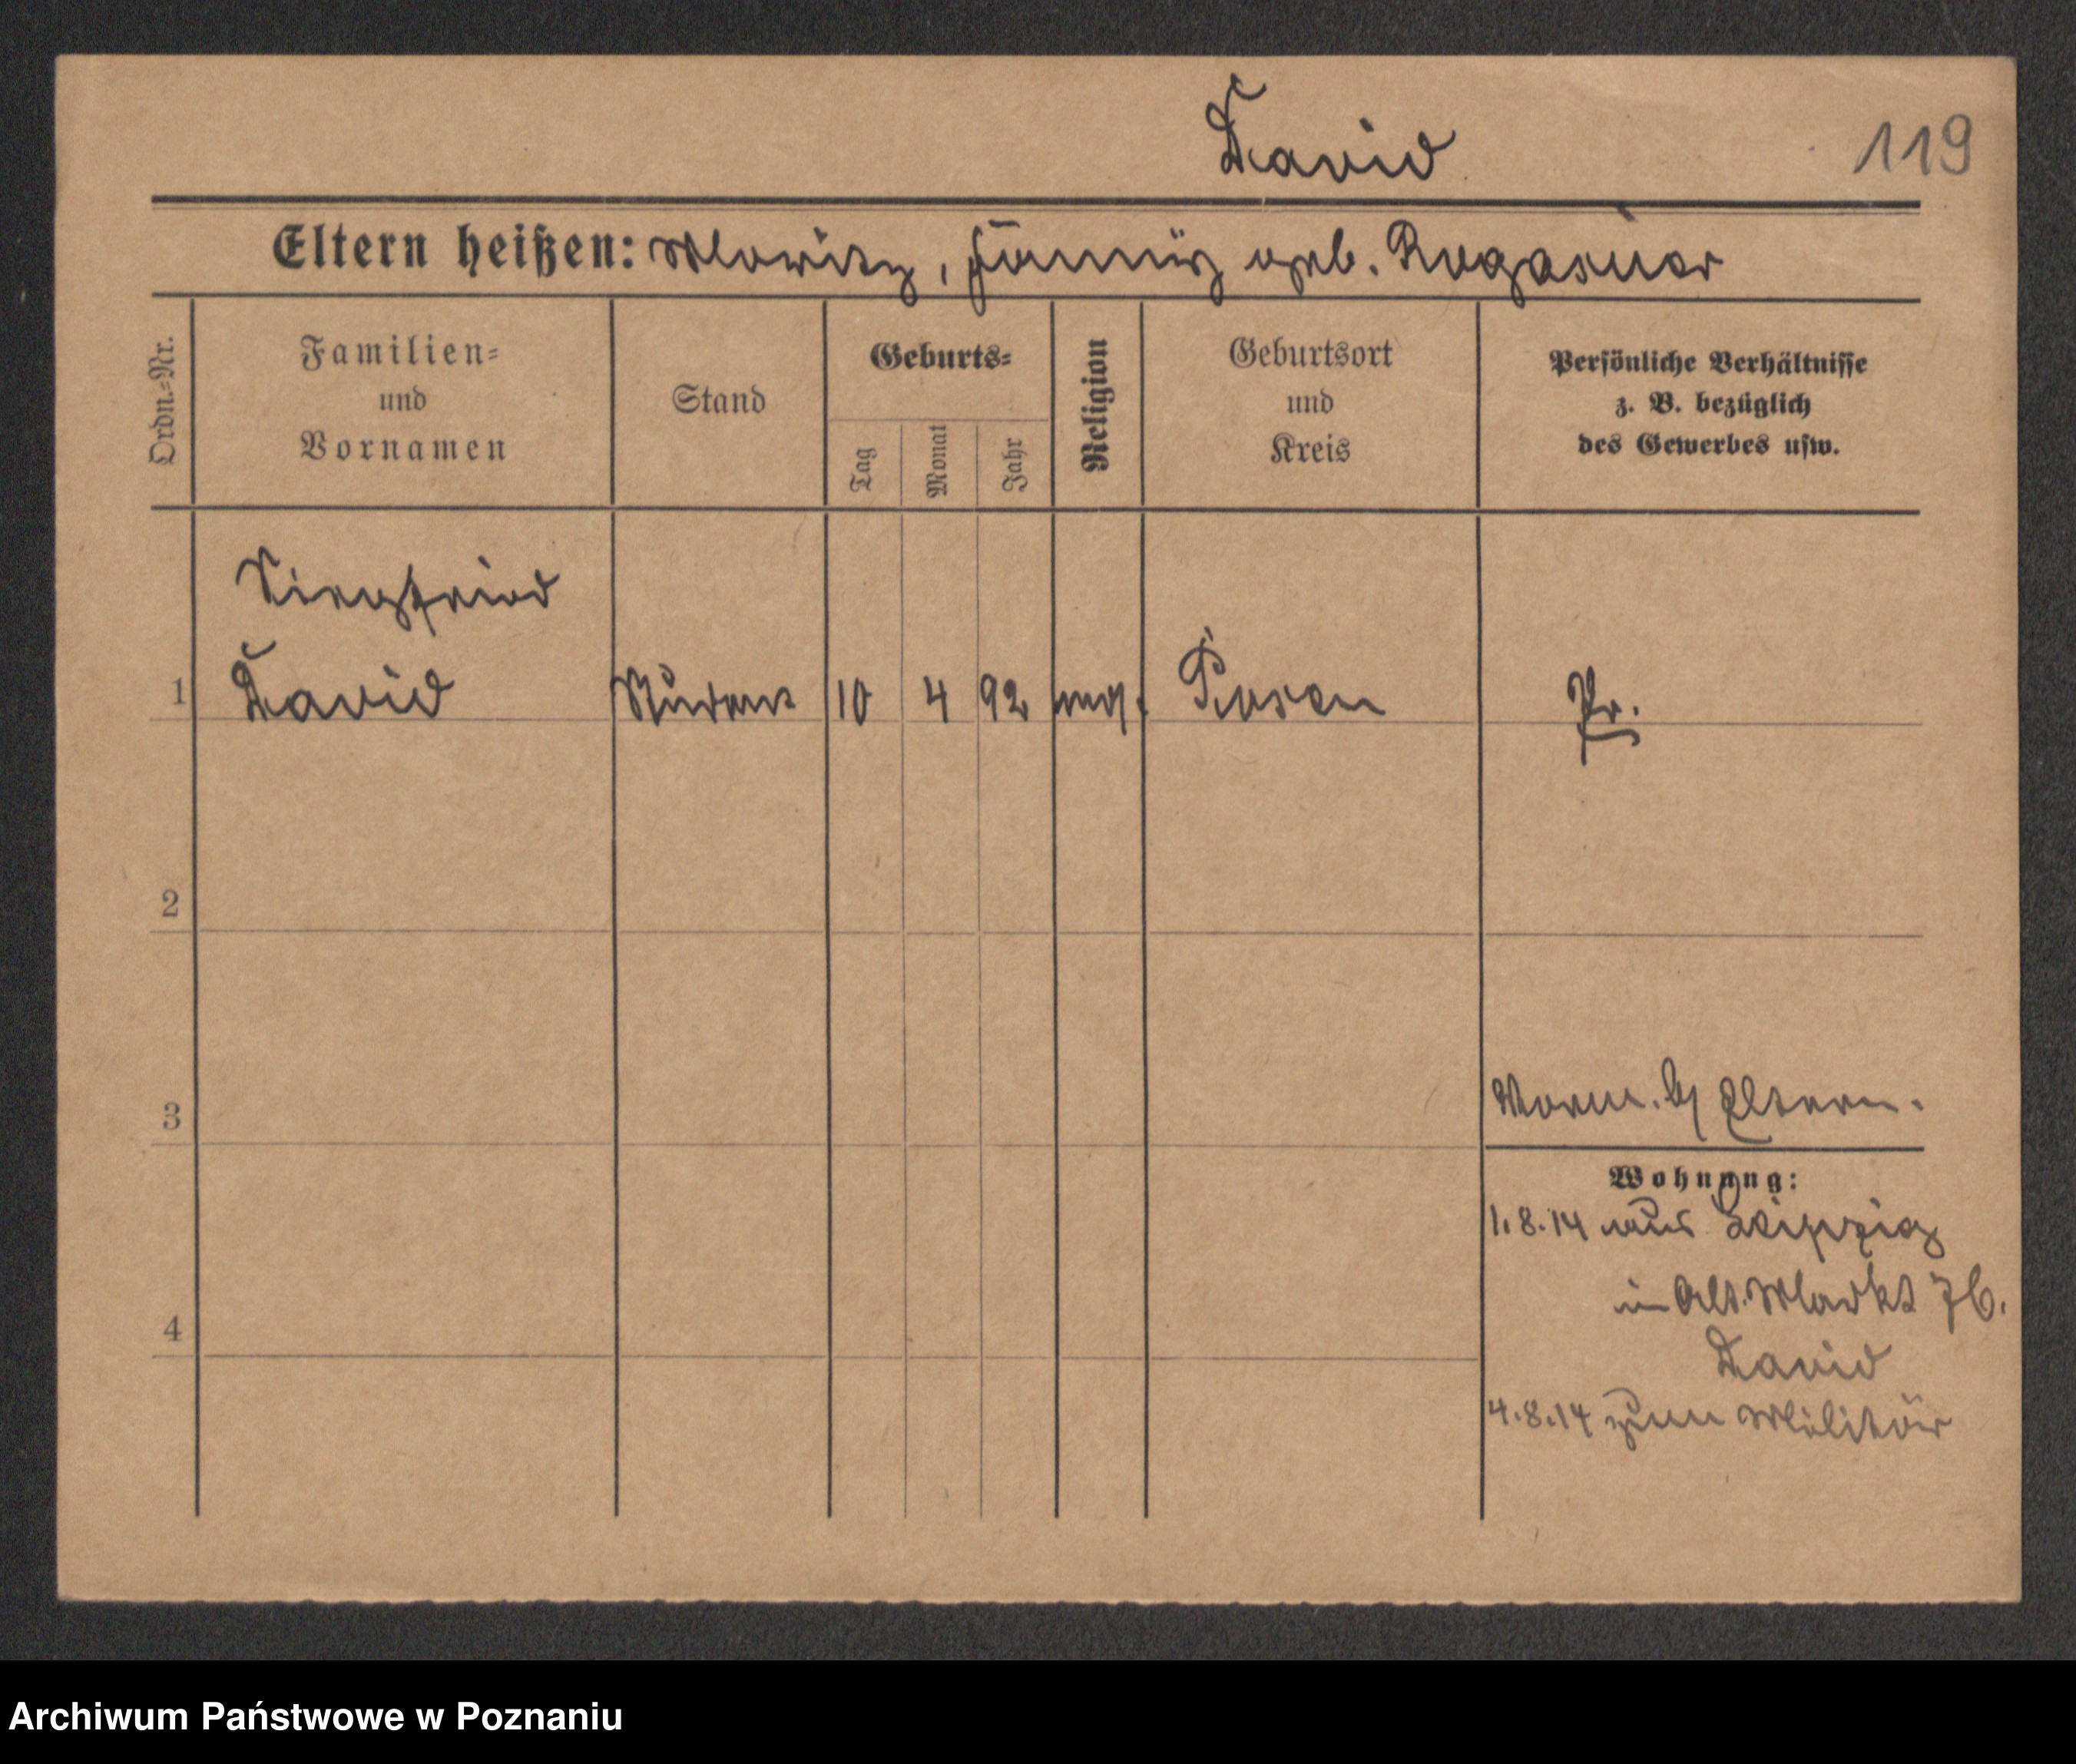 David
119
Eltern heißen: Moritz, geb. Rogasner
Ordn.=Nr.
Familien=
und
Vornamen
Stand
Geburts=
Tag
Monat
Jahr
Religion
Geburtsort
und
Kreis
Persönliche Verhältnisse
z. B. bezüglich
des Gewerbes usw.
Siegfried
1 David Student 10 4 92 mos. Posen Pr.
2
3
Eltern.
Wohnung:
1.8.14 aus Leipzig
in Alt. Markt 76.
David
4
4.8.14 zum Militär
Archiwum Państwowe w Poznaniu